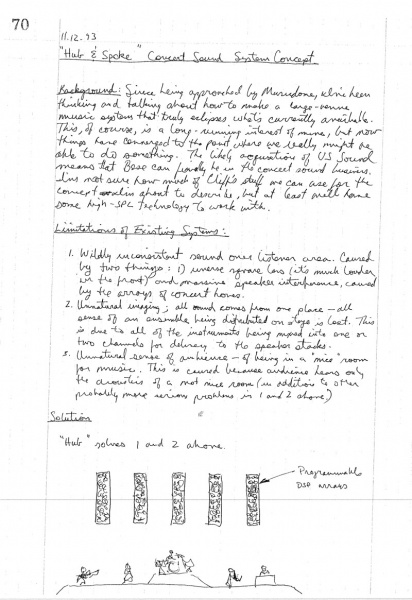 70
11.12.93
"Hub & Spoke" Concert Sound System Concept
Background: Since being approached by Masudome, we've been
thinking and talking about how to make a large-venue
music system that truly eclipses what's currently available.
This, of course, is a long-running interest of mine, but now
things have converged to the point where we really might be
able to do something. The likely acquisition of US Sound
means that Bose can finally be in the concert sound business.
I'm not sure how much of Cliff's stuff we can use for the
concept I'm about to describe, but at least we'll have
some high-SPL technology to work with.
Limitations of Existing Systems:
1. Wildly inconsistent sound over listener area. Caused
by two things: 1) inverse square loss (it's much louder
in the front) and massive speaker interference, caused
by the arrays of concert horns.
2. Unnatural imaging; all sound comes from one place - all
sense of an ensemble being distributed on stage is lost. This
is due to all of the instruments being mixed into one or
two channels for delivery to the speaker stacks.
3. Unnatural sense of ambience - of being in a "nice" room
for music. This is caused because audience hears only
the acoustics of a not nice room (in addition to other
probably more serious problems in 1 and 2 above)
Solution
"Hub" solves 1 and 2 above.
Programmable
DSP arrays